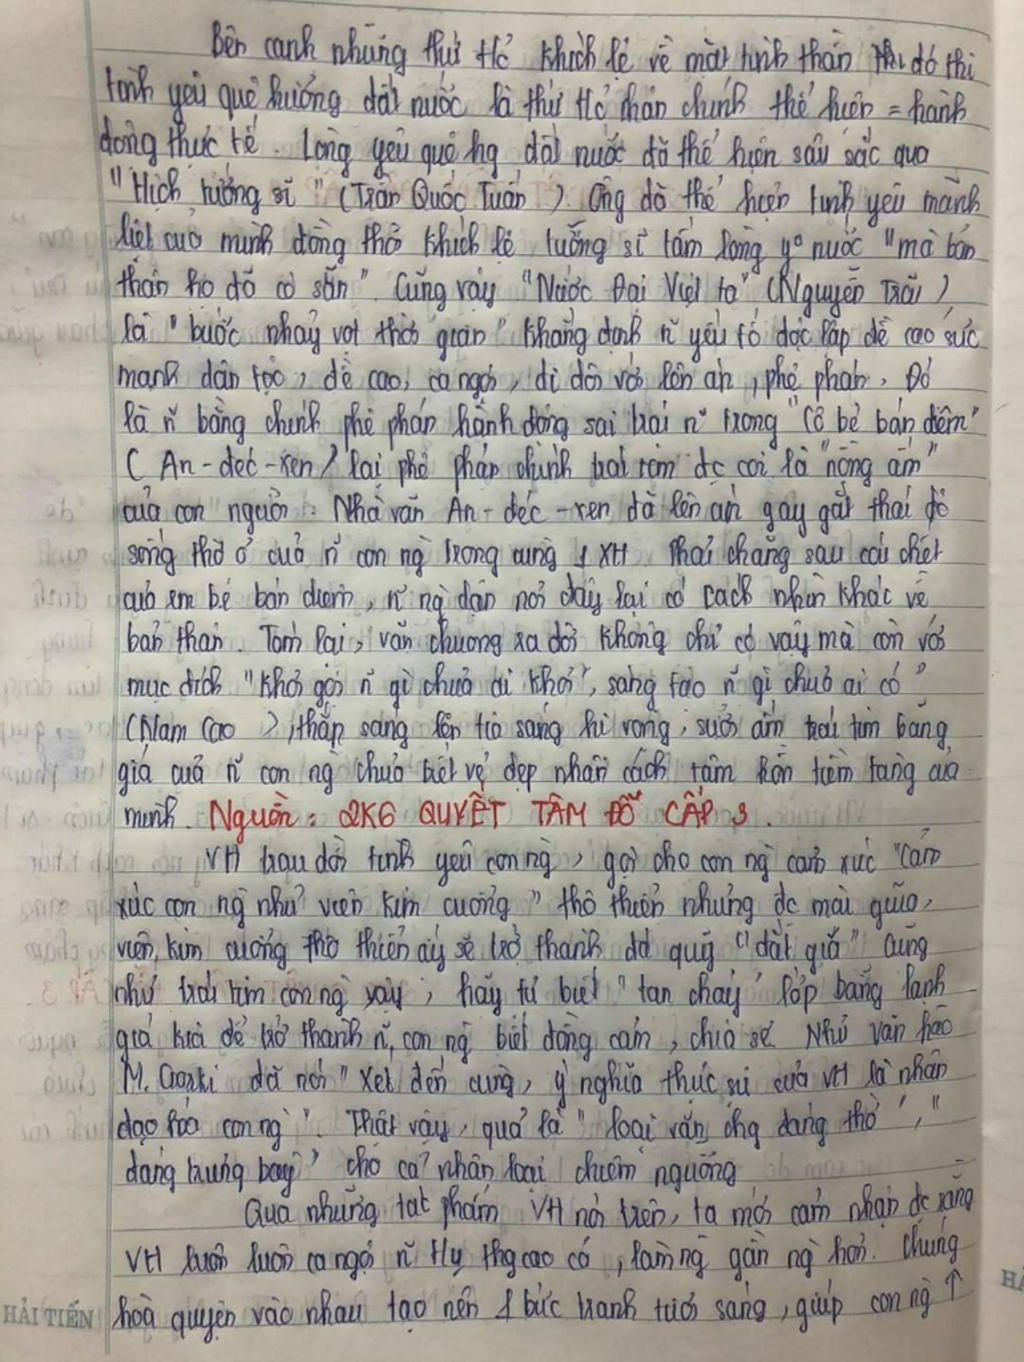 Bên cạnh những thứ đó khích lệ về mặt tinh thần thì đó thì
tình yêu quê hương đất nước là thứ đó chân chính thể hiện = hành
động thực tế. Lòng yêu quê hg đất nước đã thể hiện sâu sắc qua
"Hịch tướng sĩ" (Trần Quốc Tuấn). Ông đã thể hiện tình yêu mãnh
liệt của mình đồng thời khích lệ tướng sĩ tấm lòng yº nước "mà bản
thân họ đã có sẵn". Cũng vậy "Nước Đại Việt ta" (Nguyễn Trãi)
là "bước nhảy vọt thời gian" khẳng định ~ yếu tố độc lập đề cao sức
mạnh dân tộc, đề cao, ca ngợi, đi đôi với lên án, phê phán. Đó
là ~ bằng chính phê phán hành động sai trái ~ trong "Cô bé bán diêm"
(An-đéc-xen) lại phê phán chính trái tim đc coi là "nóng ấm"
của con người. Nhà văn An-đéc-xen đã lên án gay gắt thái độ
sống thờ ơ của ~ con ng trong cùng 1 XH. Phải chăng sau cái chết
của em bé bán diêm, ~ ng dân nơi đây lại có cách nhìn khác về
bản thân. Tóm lại, văn chương ra đời không chỉ có vậy mà còn với
mục đích "khơi gợi ~ gì chưa ai khơi, sáng tạo ~ gì chưa ai có"
(Nam Cao), thắp sáng lên tia sáng hi vọng, sưởi ấm trái tim băng
giá của ~ con ng chưa biết vẻ đẹp nhân cách tâm hồn tiềm tàng của
mình. Nguồn: 2K6 QUYẾT TÂM ĐỖ CẤP 3.
VH trau dồi tình yêu con ng, gợi cho con ng cảm xúc "Cảm
xúc con ng như viên kim cương" thô thiển nhưng đc mài giũa,
viên kim cương thô thiển ấy sẽ trở thành đá quý "đắt giá" cũng
như trái tim con ng vậy, hãy tự biết "tan chảy" lớp băng lạnh
giá kia để trở thành ~ con ng biết đồng cảm, chia sẻ. Như văn hào
M. Gorki đã nói "Xét đến cùng, ý nghĩa thực sự của VH là nhân
đạo hóa con ng". Thật vậy, quả là "loại văn chg đáng thờ", "
đáng trưng bày" cho cả nhân loại chiêm ngưỡng
Qua những tác phẩm VH nói trên, ta mới cảm nhận đc rằng
VH luôn luôn ca ngợi ~ thg cao cả, làm ng gần ng hơn. Chúng
hòa quyện vào nhau tạo nên 1 bức tranh tươi sáng, giúp con ng ↑
HẢI TIẾN